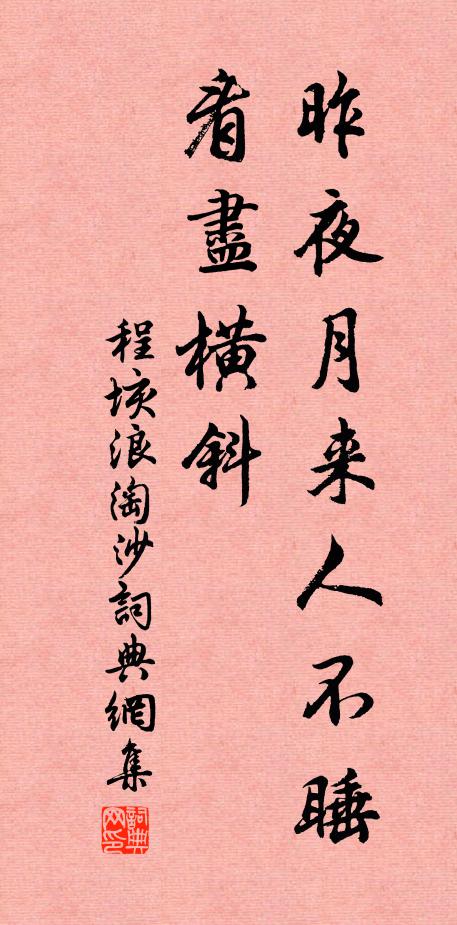 昨夜月来人不睡
看盡橫斜
程垓浪淘沙詞典網集
詞典网印